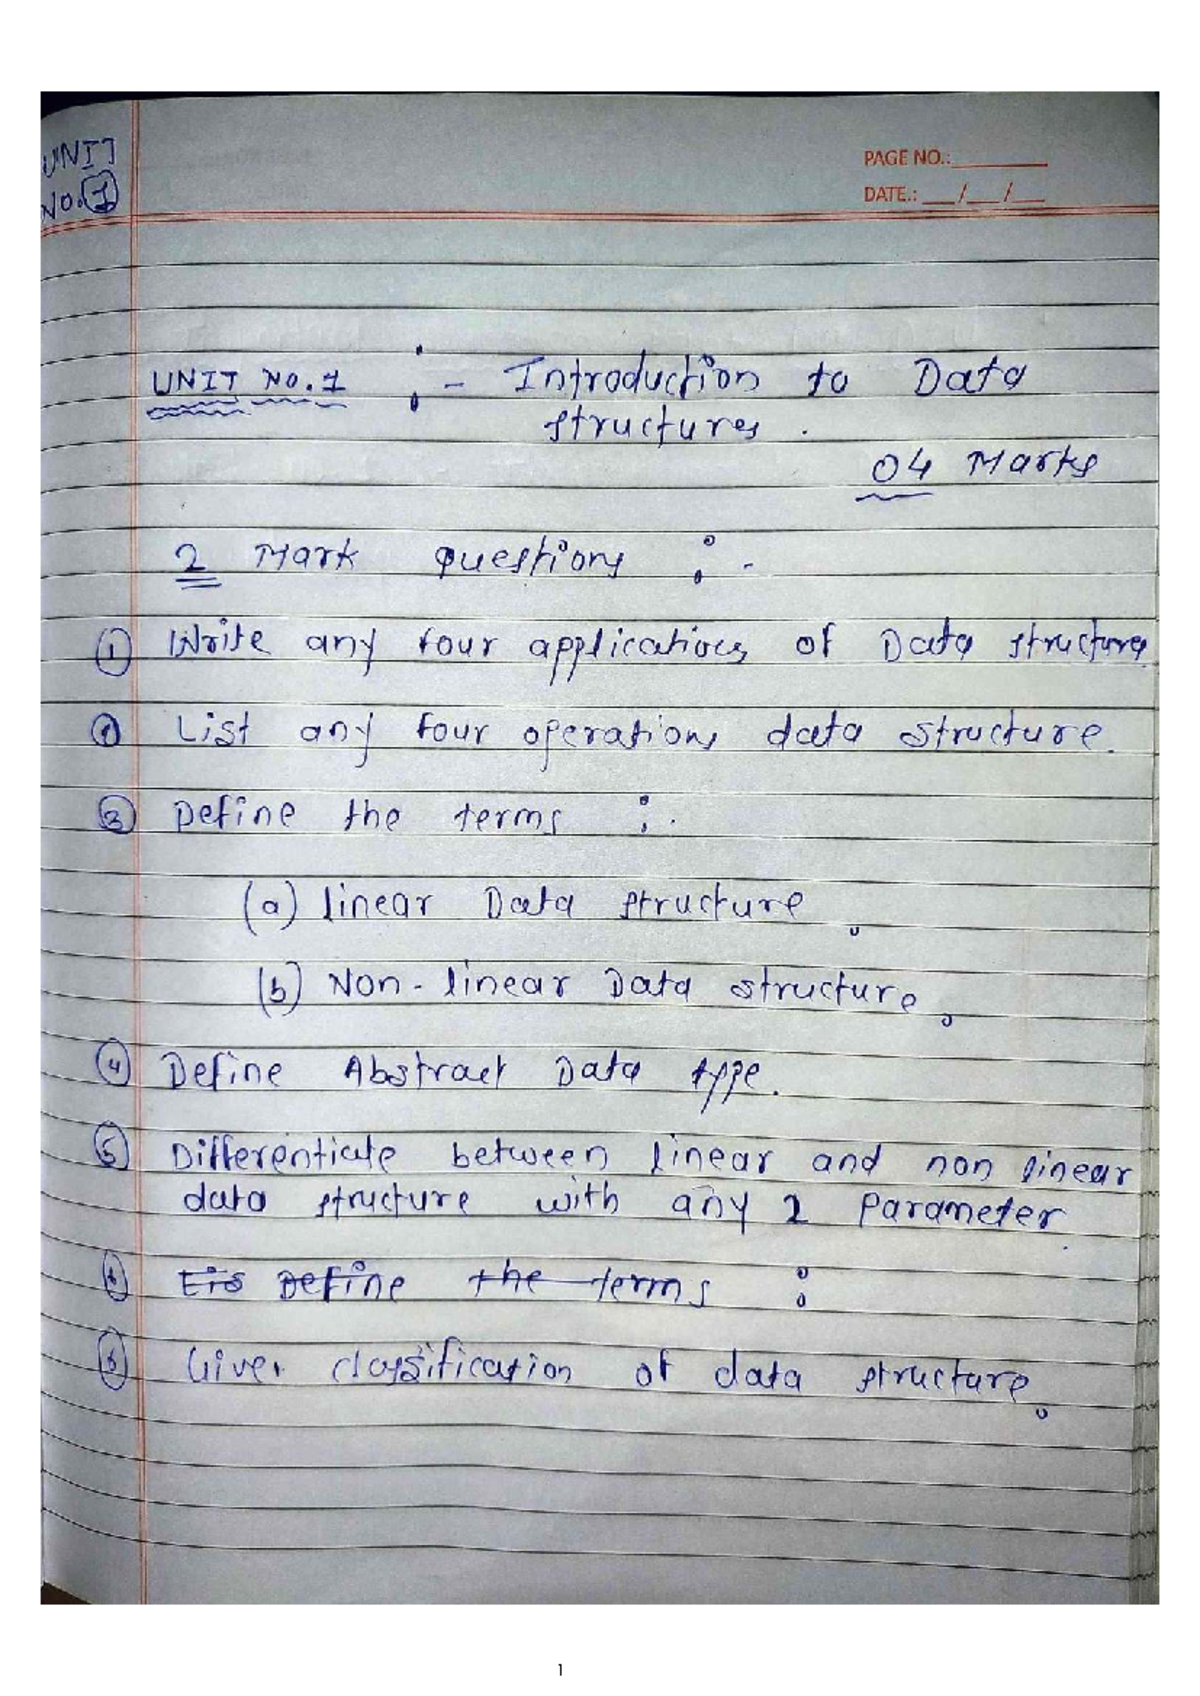 UNIT
NO. 1
PAGE NO.:
DATE.: __/__/__
UNIT NO. 1 :- Introduction to Data
structures.
04 Marks
2 Mark questions :-
① Write any four applications of Data structure
② List any four operations data structure.
③ Define the terms :.
(a) linear Data structure.
(b) Non-linear Data structure.
④ Define Abstract Data type.
⑤ Differentiate between linear and non linear
data structure with any 2 Parameter.
Define the terms :
⑥ Give classification of data structure.
1